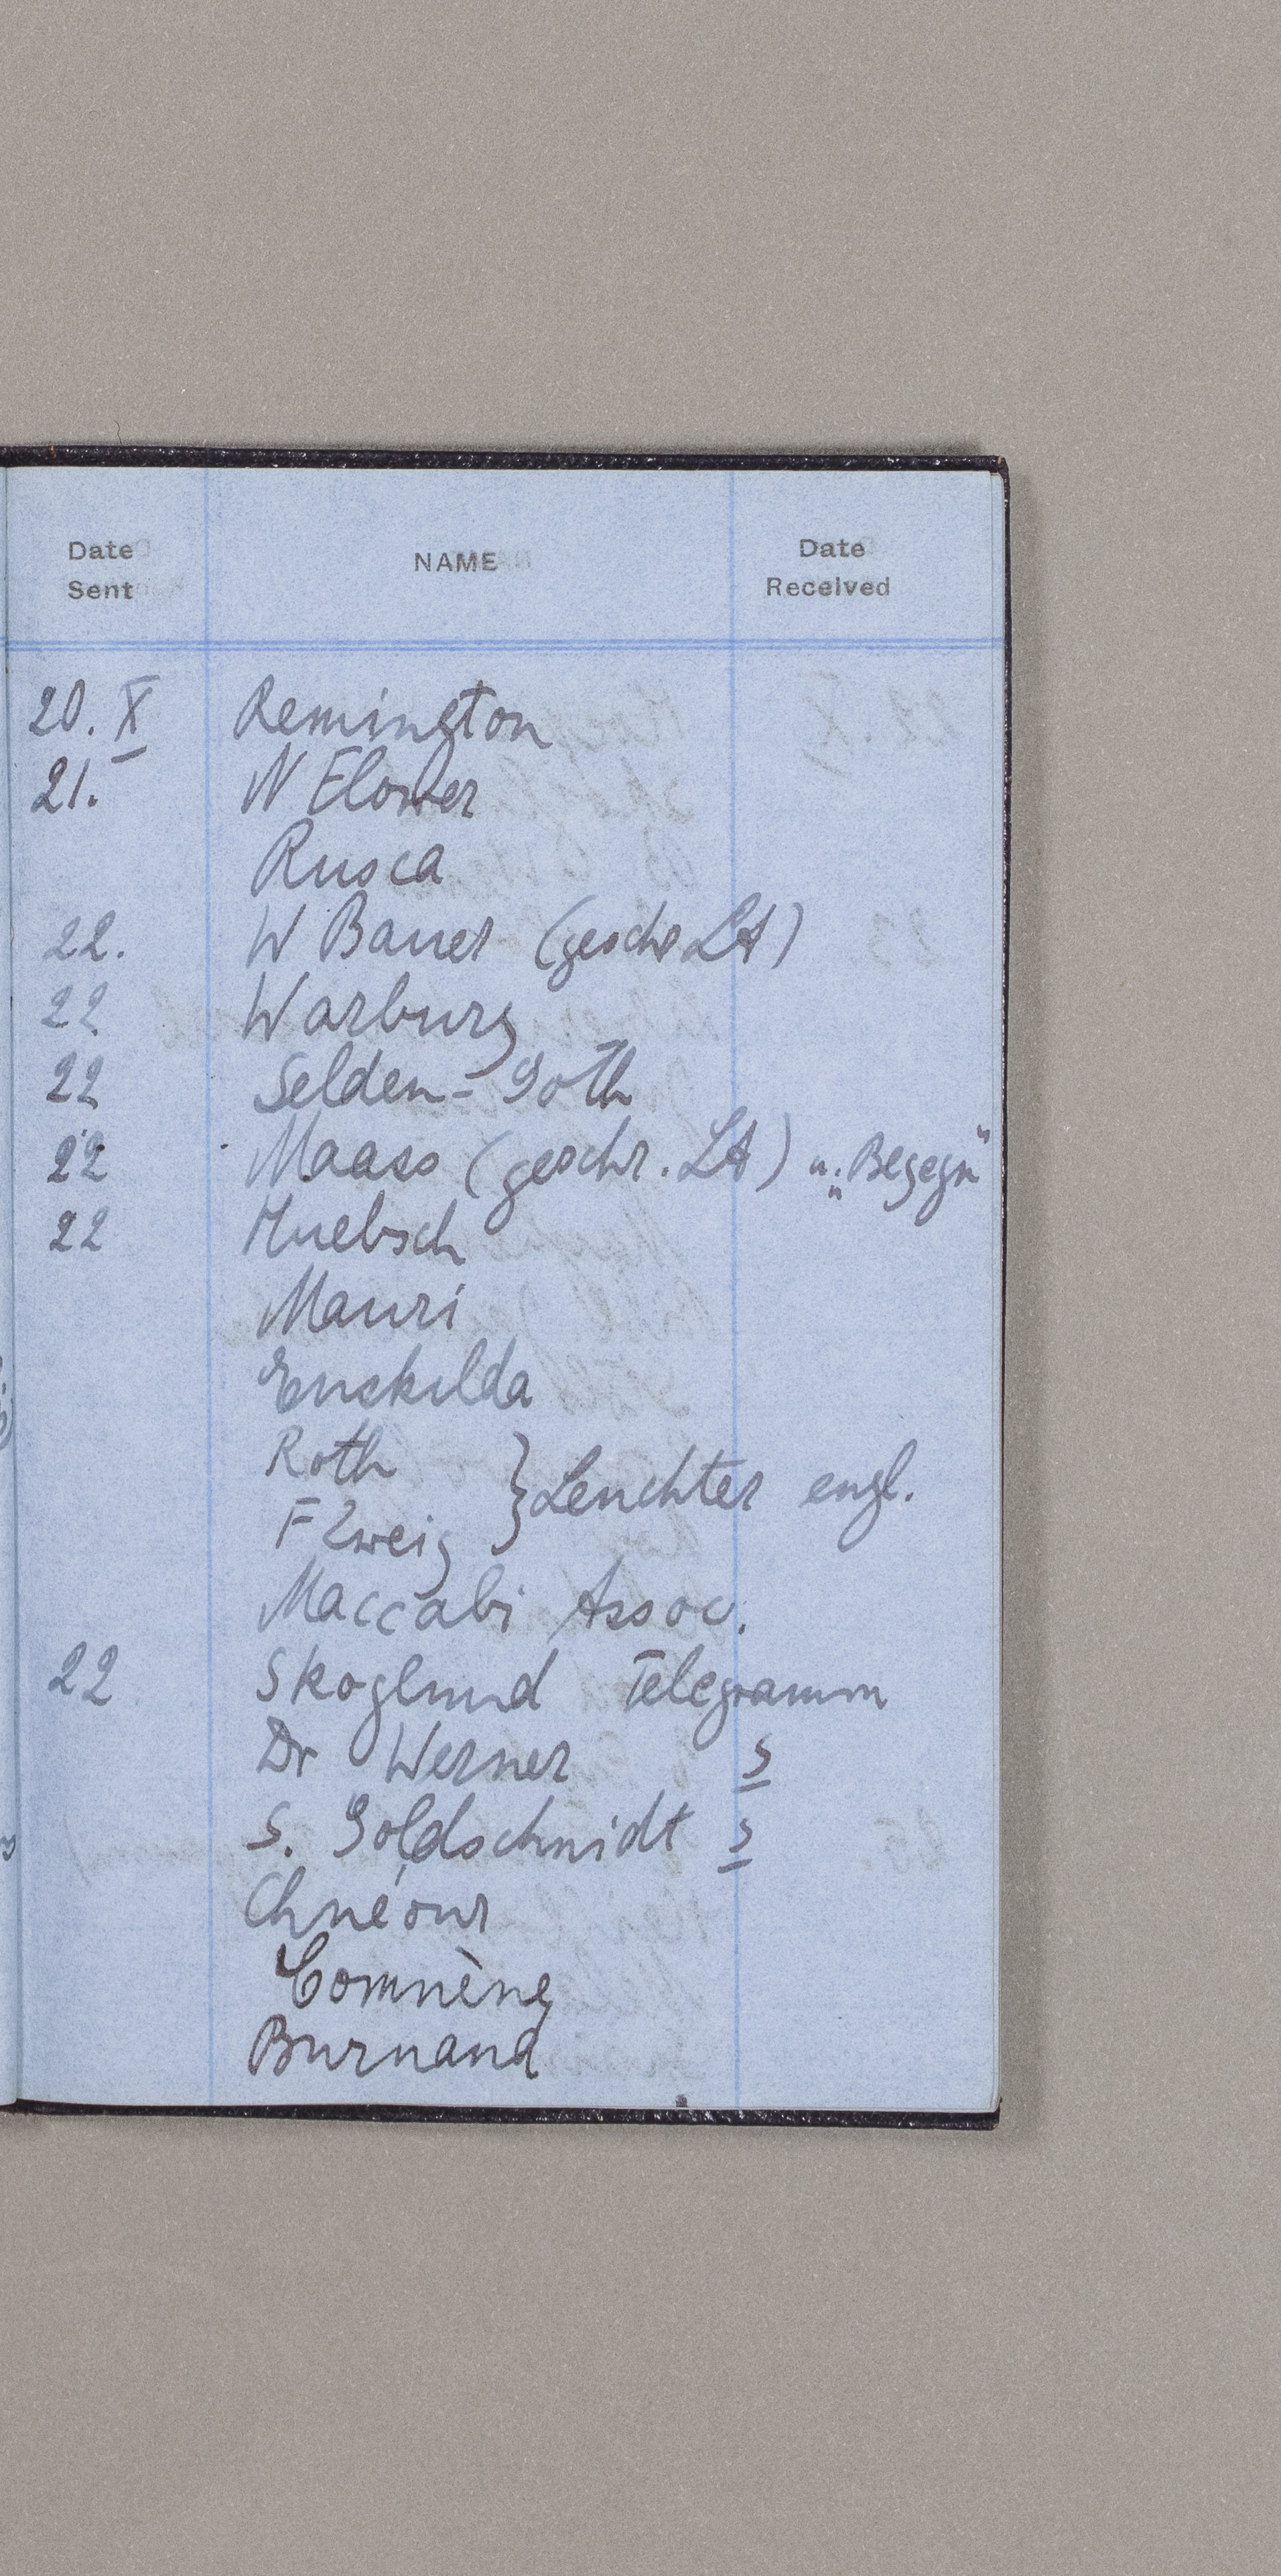 Date Sent NAME Date Received
20. X Remington
21. N Flower
Rusca
22. W Bauer (geschr LA)
22 Warburg
22 Selden-Goth
22 Maass (geschr. LA) u. „Begegn“
22 Huebsch
Mauri
Enskilda
Roth
F Zweig } Leuchter engl.
Maccabi Assoc.
22 Skoglund Telegramm
Dr Werner S
S. Goldschmidt S
Chnéour
Comnène
Burnand